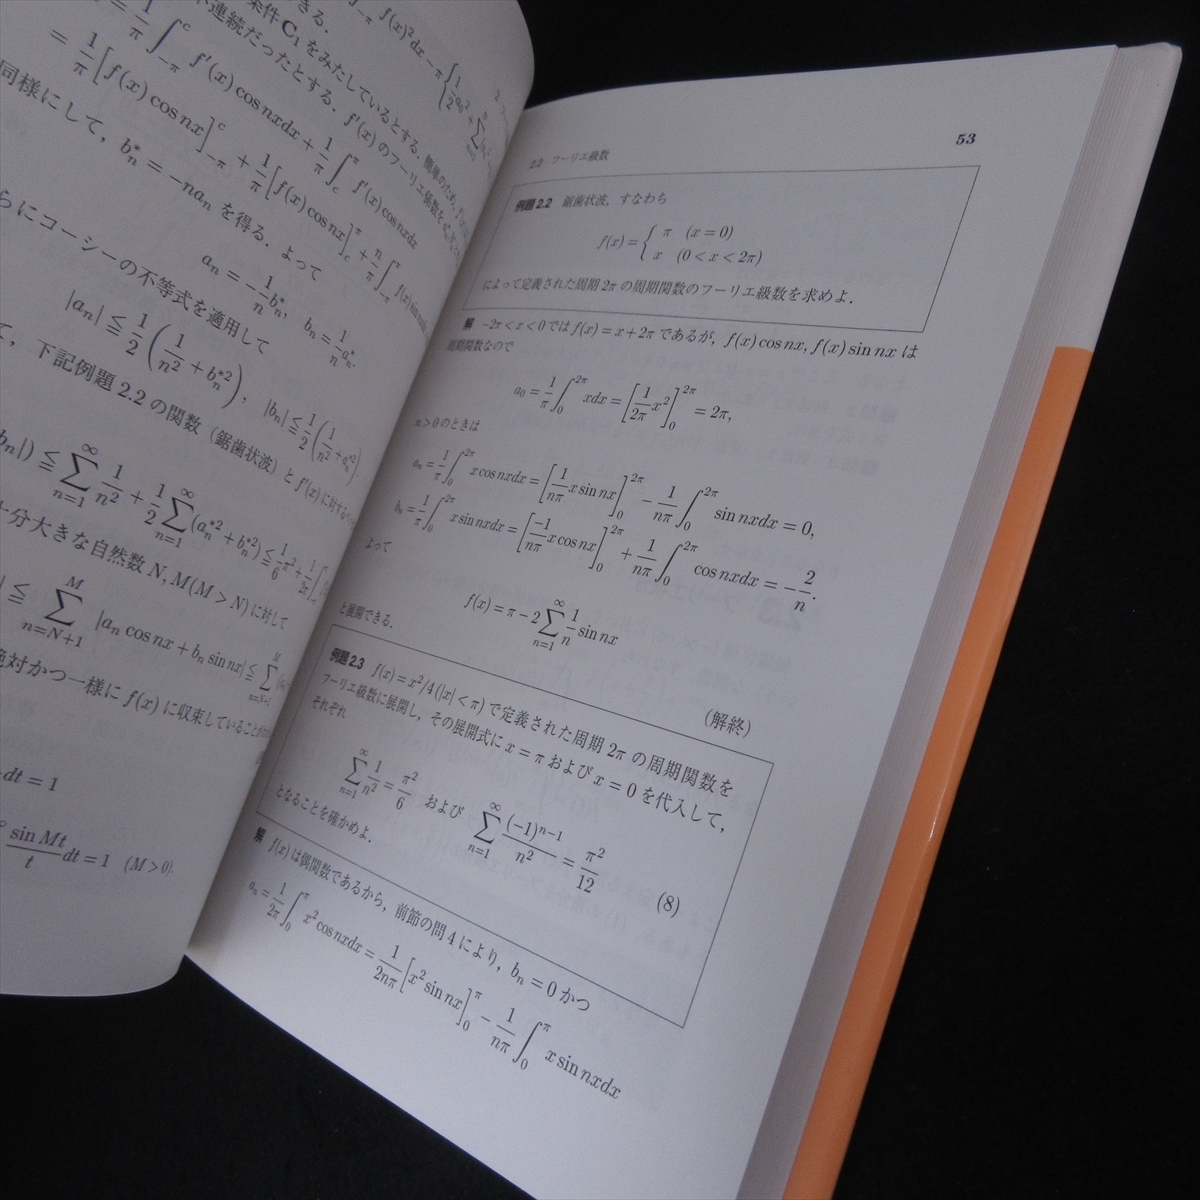 きる．
条件 C₁ をみたしているとする．簡単のため，
不連続だったとする．f'(x) のフーリエ係数を
= 1/π ∫_{-π}^{c} f'(x) cos nxdx + 1/π ∫_{c}^{π} f'(x) cos nxdx
= 1/π [f(x) cos nx]_{-π}^{c} + 1/π [f(x) cos nx]_{c}^{π} + n/π ∫_{-π}^{π} f(x) sin nx
同様にして，b_n^* = -na_n を得る．よって
a_n = -1/n b_n^*, b_n = 1/n a_n^*.
らにコーシーの不等式を適用して
|a_n| ≦ 1/2 (1/n² + b_n^{*2}), |b_n| ≦ 1/2 (1/n² + a_n^{*2}).
て，下記例題 2.2 の関数（鋸歯状波）と f'(x) に対する
b_n|) ≦ Σ_{n=1}^{∞} 1/n² + 1/2 Σ_{n=1}^{∞} (a_n^{*2} + b_n^{*2}) ≦
十分大きな自然数 N, M(M > N) に対して
| ≦ Σ_{n=N+1}^{M} |a_n cos nx + b_n sin nx| ≦ Σ_{n=N+1}^{M}
絶対かつ一様に f(x) に収束していることが
dt = 1
sin Mt/t dt = 1 (M > 0).
2.2 フーリエ級数 53
例題 2.2 鋸歯状波，すなわち
f(x) = { π (x = 0)
x (0 < x < 2π)
によって定義された周期 2π の周期関数のフーリエ級数を求めよ．
解 -2π < x < 0 では f(x) = x + 2π であるが，f(x) cos nx, f(x) sin nx は
周期関数なので
a₀ = 1/π ∫_0^{2π} xdx = [1/2π x²]_0^{2π} = 2π,
n > 0 のときは
a_n = 1/π ∫_0^{2π} x cos nxdx = [1/nπ x sin nx]_0^{2π} - 1/nπ ∫_0^{2π} sin nxdx = 0,
b_n = 1/π ∫_0^{2π} x sin nxdx = [-1/nπ x cos nx]_0^{2π} + 1/nπ ∫_0^{2π} cos nxdx = -2/n.
よって
f(x) = π - 2 Σ_{n=1}^{∞} 1/n sin nx
と展開できる． （解終）
例題 2.3 f(x) = x²/4 (|x| < π) で定義された周期 2π の周期関数を
フーリエ級数に展開し，その展開式に x = π および x = 0 を代入して，
それぞれ
Σ_{n=1}^{∞} 1/n² = π²/6 および Σ_{n=1}^{∞} (-1)^{n-1}/n² = π²/12 (8)
となることを確かめよ．
解 f(x) は偶関数であるから，前節の問 4 により，b_n = 0 かつ
a_n = 1/2π ∫_0^{π} x² cos nxdx = 1/2nπ [x² sin nx]_0^{π} - 1/nπ ∫_0^{π} x sin nxdx